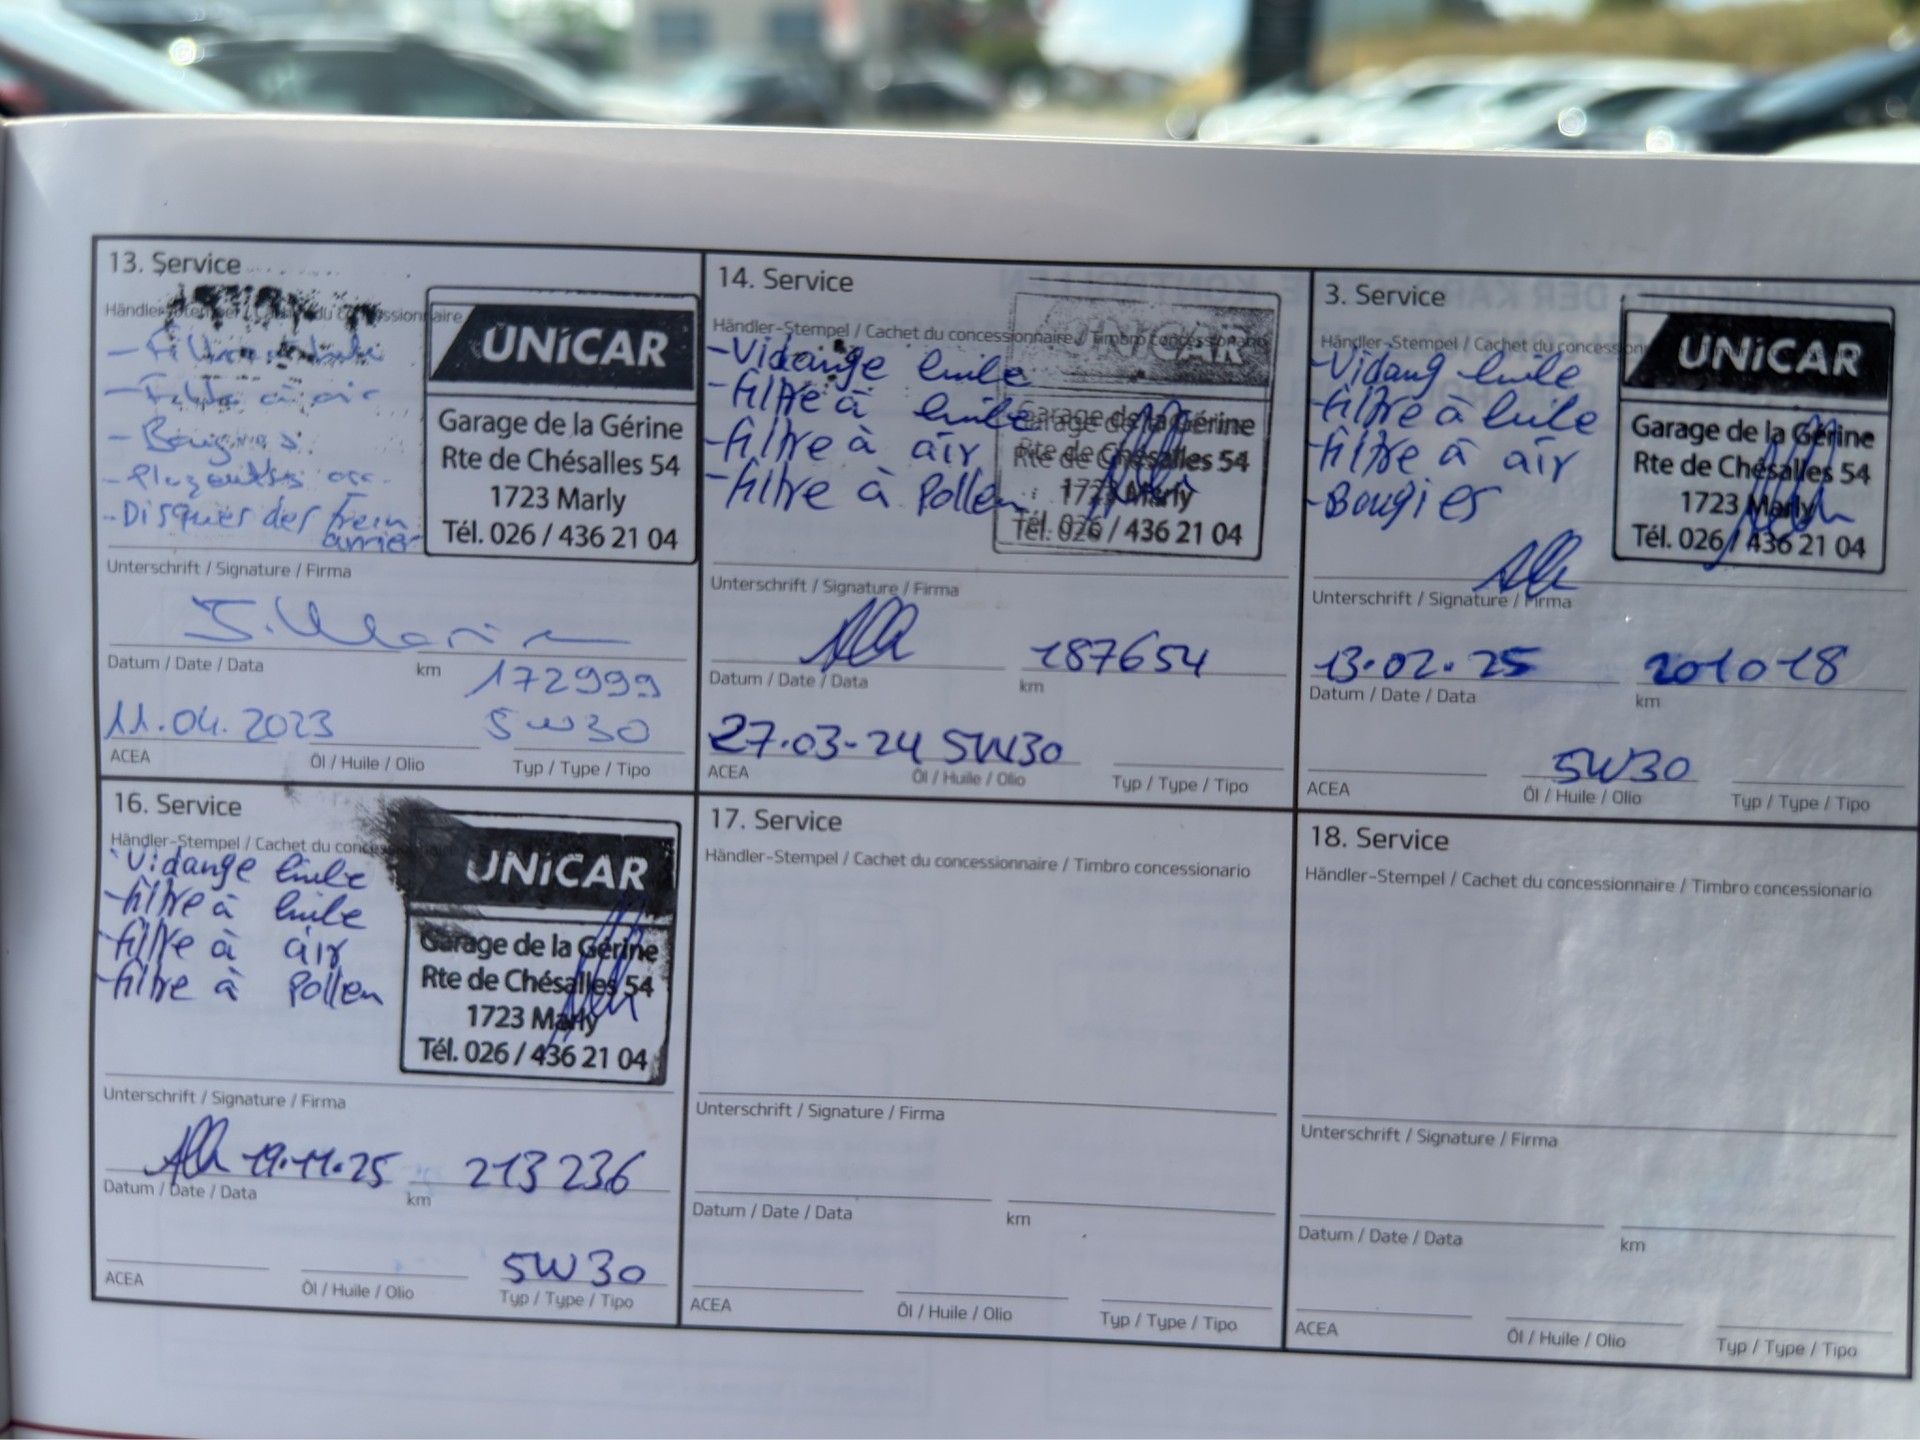 13. Service
Händler-Stempel / Cachet du concessionnaire
UNiCAR
- Filtre à huile
- Filtre à air
- Bougies
- Plaquettes arr.
- Disques des frein
arrier
Garage de la Gérine
Rte de Chésalles 54
1723 Marly
Tél. 026 / 436 21 04
Unterschrift / Signature / Firma
Datum / Date / Data
km
172999
11.04.2023
5W30
ACEA
Öl / Huile / Olio
Typ / Type / Tipo
14. Service
Händler-Stempel / Cachet du concessionnaire / Timbro concessionario
UNiCAR
- Vidange huile
- filtre à huile
- filtre à air
- filtre à Pollen
Garage de la Gérine
Rte de Chésalles 54
1723 Marly
Tél. 026 / 436 21 04
Unterschrift / Signature / Firma
187654
Datum / Date / Data
km
27.03-24 5W30
ACEA
Öl / Huile / Olio
Typ / Type / Tipo
3. Service
Händler-Stempel / Cachet du concessionn
UNiCAR
- Vidang huile
- filtre à huile
- filtre à air
- Bougies
Garage de la Gérine
Rte de Chésalles 54
1723 Marly
Tél. 026 / 436 21 04
Unterschrift / Signature / Firma
13.02.25
201018
Datum / Date / Data
km
5W30
ACEA
Öl / Huile / Olio
Typ / Type / Tipo
16. Service
Händler-Stempel / Cachet du
UNiCAR
- Vidange huile
- filtre à huile
- filtre à air
- filtre à Pollen
Garage de la Gérine
Rte de Chésalles 54
1723 Marly
Tél. 026 / 436 21 04
Unterschrift / Signature / Firma
19.11.25
213236
Datum / Date / Data
km
5W30
ACEA
Öl / Huile / Olio
Typ / Type / Tipo
17. Service
Händler-Stempel / Cachet du concessionnaire / Timbro concessionario
Unterschrift / Signature / Firma
Datum / Date / Data
km
ACEA
Öl / Huile / Olio
Typ / Type / Tipo
18. Service
Händler-Stempel / Cachet du concessionnaire / Timbro concessionario
Unterschrift / Signature / Firma
Datum / Date / Data
km
ACEA
Öl / Huile / Olio
Typ / Type / Tipo